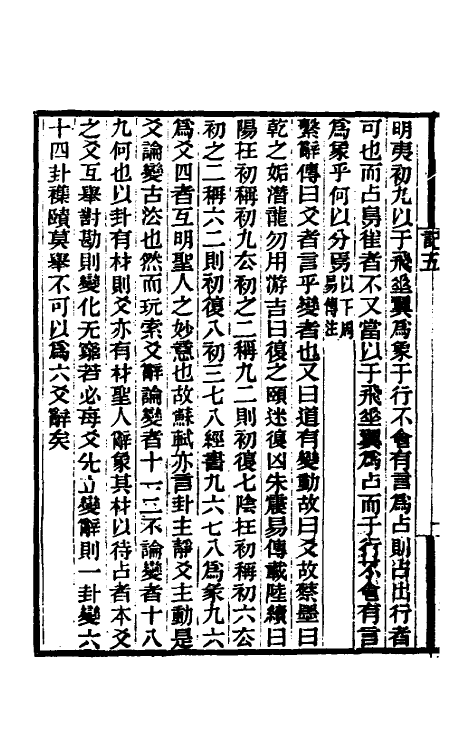 明夷初九以于飛垂翼爲象于行不食有言爲占則占出行者
可也而占鳥雀者不又當以于飛垂翼爲占而于行不食有言
爲象乎何以分男以下周易傳注
繫辭傳曰爻者言乎變者也又曰道有變動故曰爻故蔡墨曰
乾之姤潛龍勿用游吉曰復之頤迷復凶朱震易傳載陸績曰
陽在初稱初九去初之二稱九二則初復七陰在初稱初六去
初之二稱六二則初復八初三七八經畫九六七八爲象九六
爲爻四者互明聖人之妙意也故蘇軾亦言卦主靜爻主動是
爻論變古法也然而玩索爻辭論變者十一三不論變者十八
九何也以卦有材則爻亦有材聖人辭象其材以待占者本爻
之爻互舉對勘則變化无窮若必每爻先立變辭則一卦變六
十四卦襍賾莫舉不可以爲六爻辭矣
記五